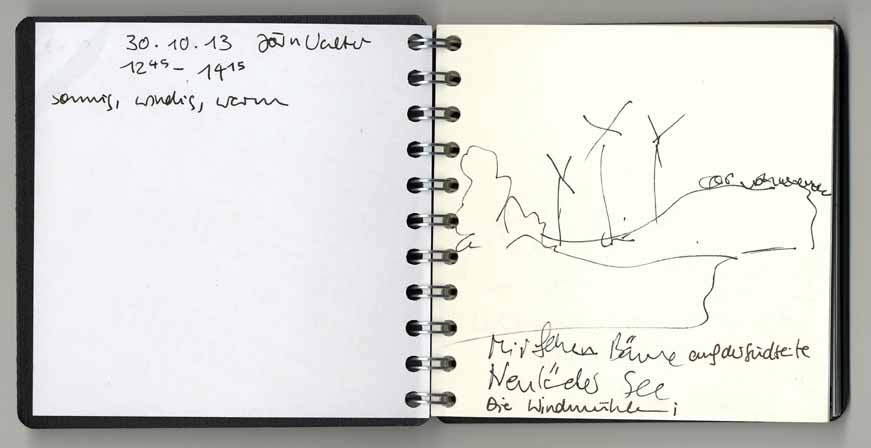 30.10.13 Jörn Vanter
12 45 – 14 15
sonnig, windig, warm
Mir fehlen Bäume auf der Südseite
Neuläder See
Die Windmühlen